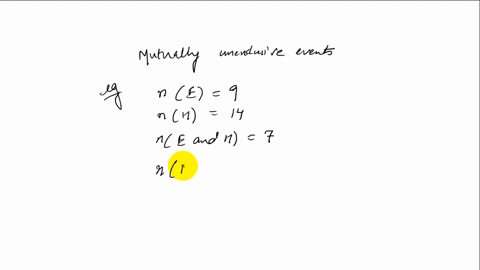 Mutually unenclusive events
eg n (E) = 9
n (M) = 14
n( E and M) = 7
n (